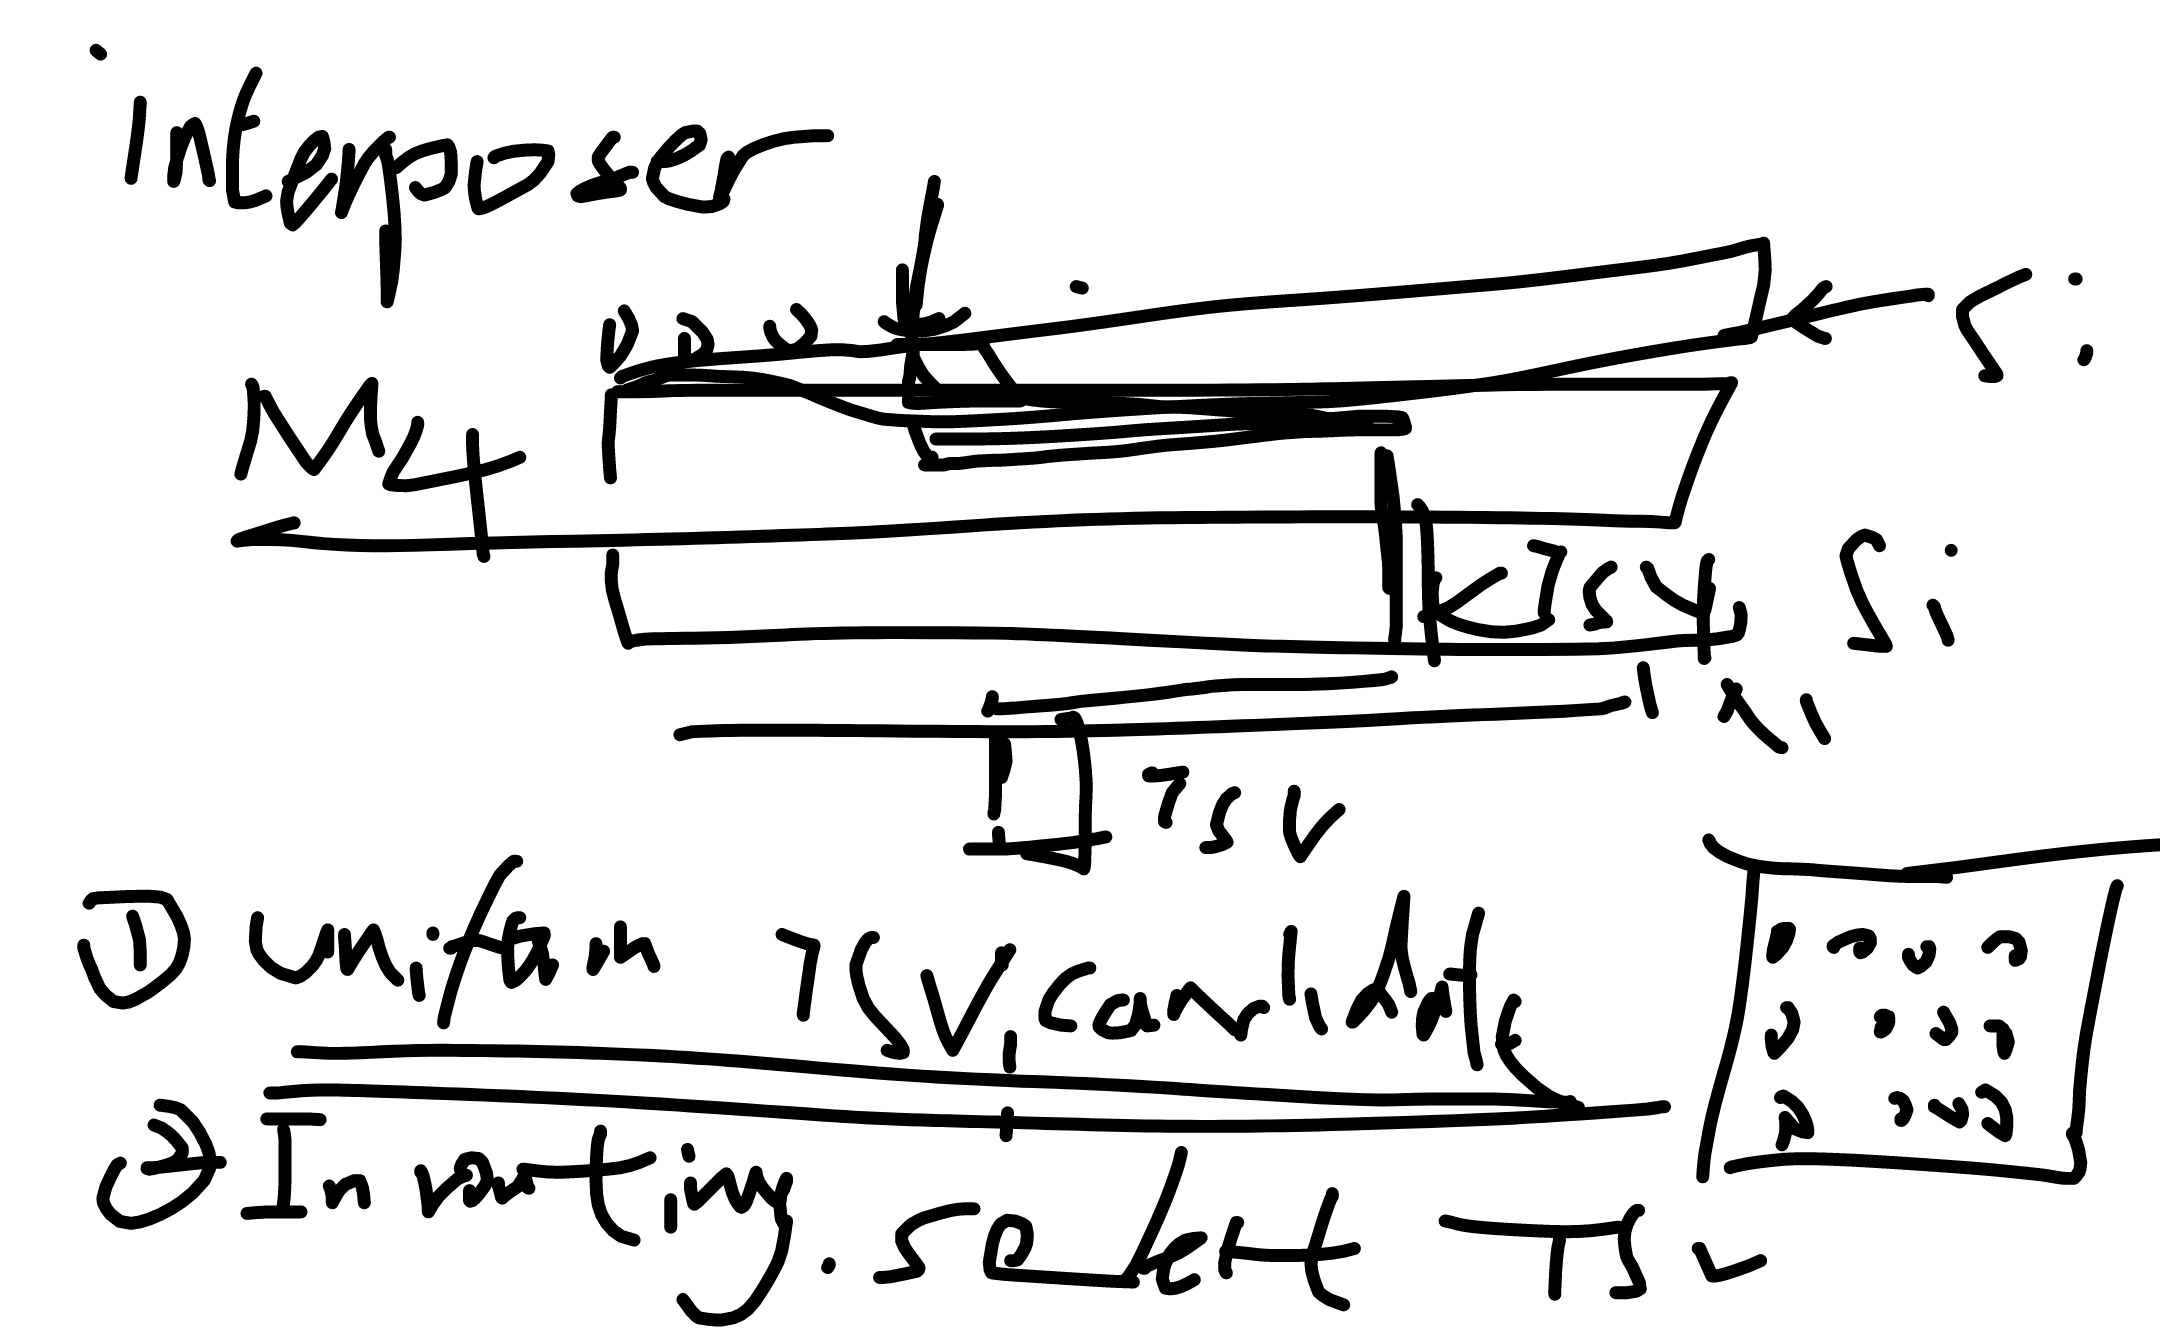 interposer
Si
M4
TSV Si
TSV
① uniform TSV candidate
② In routing. select TSV